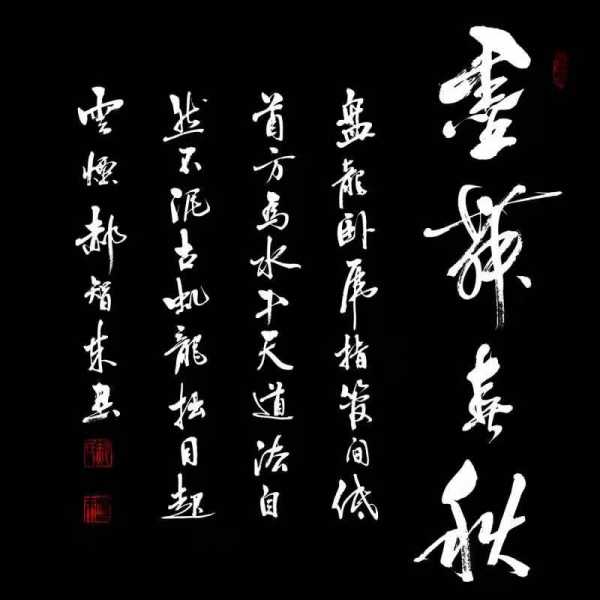 墨舞春秋
盘龙卧虎指管间低
首方为水中天道法自
然不泥古虬龍拙目起
雲烟郝智书